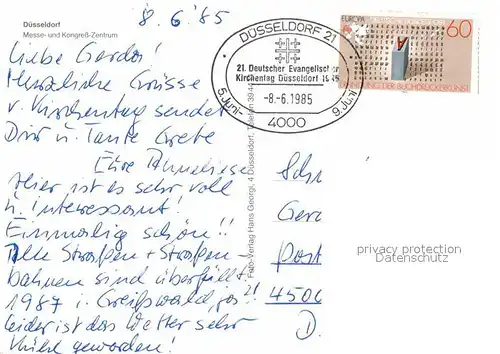 Düsseldorf
Messe- und Kongreß-Zentrum
8.6.'85
Liebe Gerda!
Herzliche Grüsse
v. Kirchentag sendet
Dir u. Tante Grete
Eure Anneliese
Hier ist es sehr voll
u. interessant!
Einmalig schön!!
Alle Straßen + Straßen-
bahnen sind überfüllt.
1987 i. Greifswald,
leider ist das Wetter sehr
kühl geworden!
Foto-Verlag Hans Georgi, 4 Düsseldorf, Telefon 3944
DÜSSELDORF 21
21. Deutscher Evangelischer
Kirchentag Düsseldorf
-8.-6.1985
5. Juni
4000
EUROPA
60
DER BUCHDRUCKERKUNST
Sch
Gerd
Post
4500
D.
privacy protection
Datenschutz